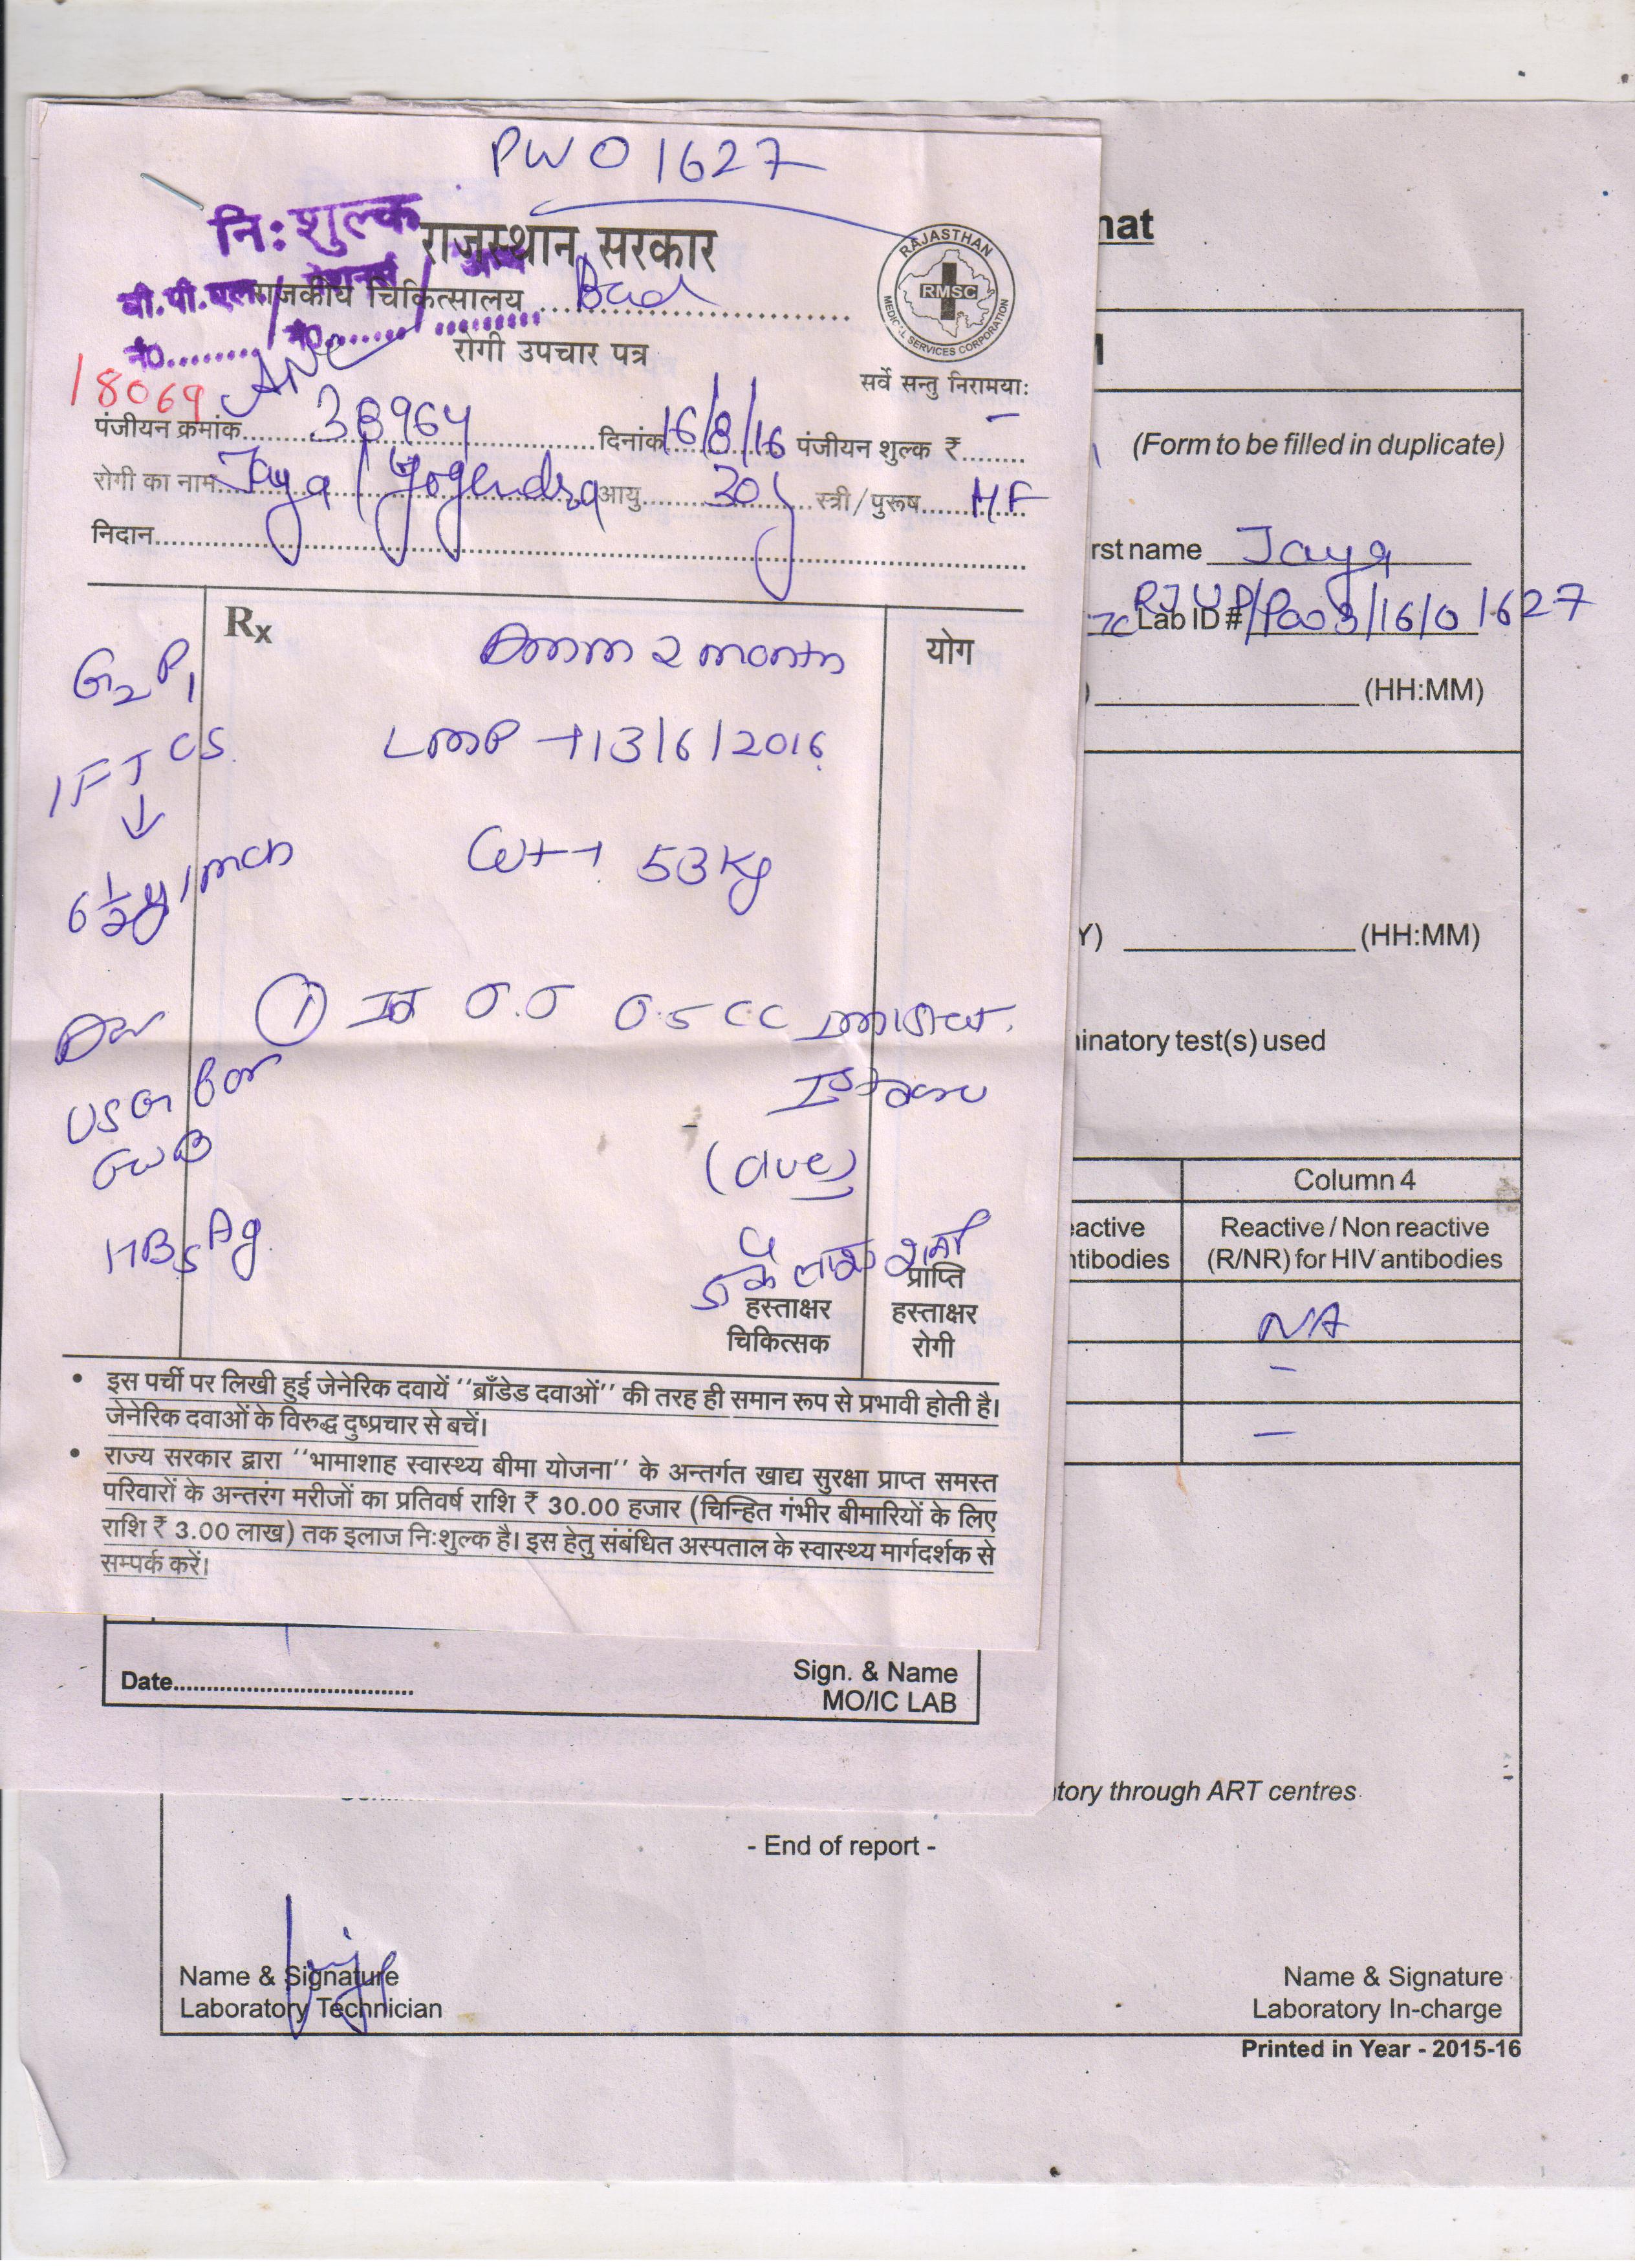 PW01627
नि:शुल्क
राजस्थान सरकार
बी.पी.एल. / पेंशनर्स /
राजकीय चिकित्सालय
नं०........ / नं०........
रोगी उपचार पत्र
RAJASTHAN
RMSC
MEDICAL SERVICES CORPORATION
सर्वे सन्तु निरामया:
18069 ANC
पंजीयन क्रमांक 38964 दिनांक 16/8/16 पंजीयन शुल्क ₹ –
रोगी का नाम Jaya / Yogendra आयु 30y स्त्री / पुरूष HF
निदान
Rx
योग
G2P1
1FTCS
↓
6½y/mch
2 month
LMP → 13/6/2016
Wt → 53 kg
Adv
USG
HBsAg
① 0.5 CC
हस्ताक्षर
चिकित्सक
प्राप्ति
हस्ताक्षर
रोगी
• इस पर्ची पर लिखी हुई जेनेरिक दवायें ''ब्राँडेड दवाओं'' की तरह ही समान रूप से प्रभावी होती है।
जेनेरिक दवाओं के विरुद्ध दुष्प्रचार से बचें।
• राज्य सरकार द्वारा ''भामाशाह स्वास्थ्य बीमा योजना'' के अन्तर्गत खाद्य सुरक्षा प्राप्त समस्त
परिवारों के अन्तरंग मरीजों का प्रतिवर्ष राशि ₹ 30.00 हजार (चिन्हित गंभीर बीमारियों के लिए
राशि ₹ 3.00 लाख) तक इलाज नि:शुल्क है। इस हेतु संबंधित अस्पताल के स्वास्थ्य मार्गदर्शक से
सम्पर्क करें।
Date
Sign. & Name
MO/IC LAB
nat
(Form to be filled in duplicate)
rst name Jaya
Lab ID # RJUDP/P003/16/01627
(HH:MM)
Y) (HH:MM)
minatory test(s) used
Column 4
eactive
ntibodies
Reactive / Non reactive
(R/NR) for HIV antibodies
NA
–
–
tory through ART centres
- End of report -
Name & Signature
Laboratory Technician
Name & Signature
Laboratory In-charge
Printed in Year - 2015-16